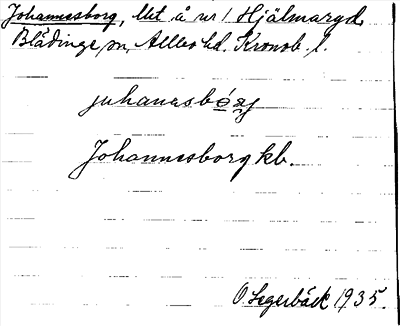 Johannesborg, lht å nr 1 Hjälmaryd,
Blädinge sn, Allbo hd. Kronob. l.
juhanasbórj
Johannesborg kb.
O. Segerbäck 1935.